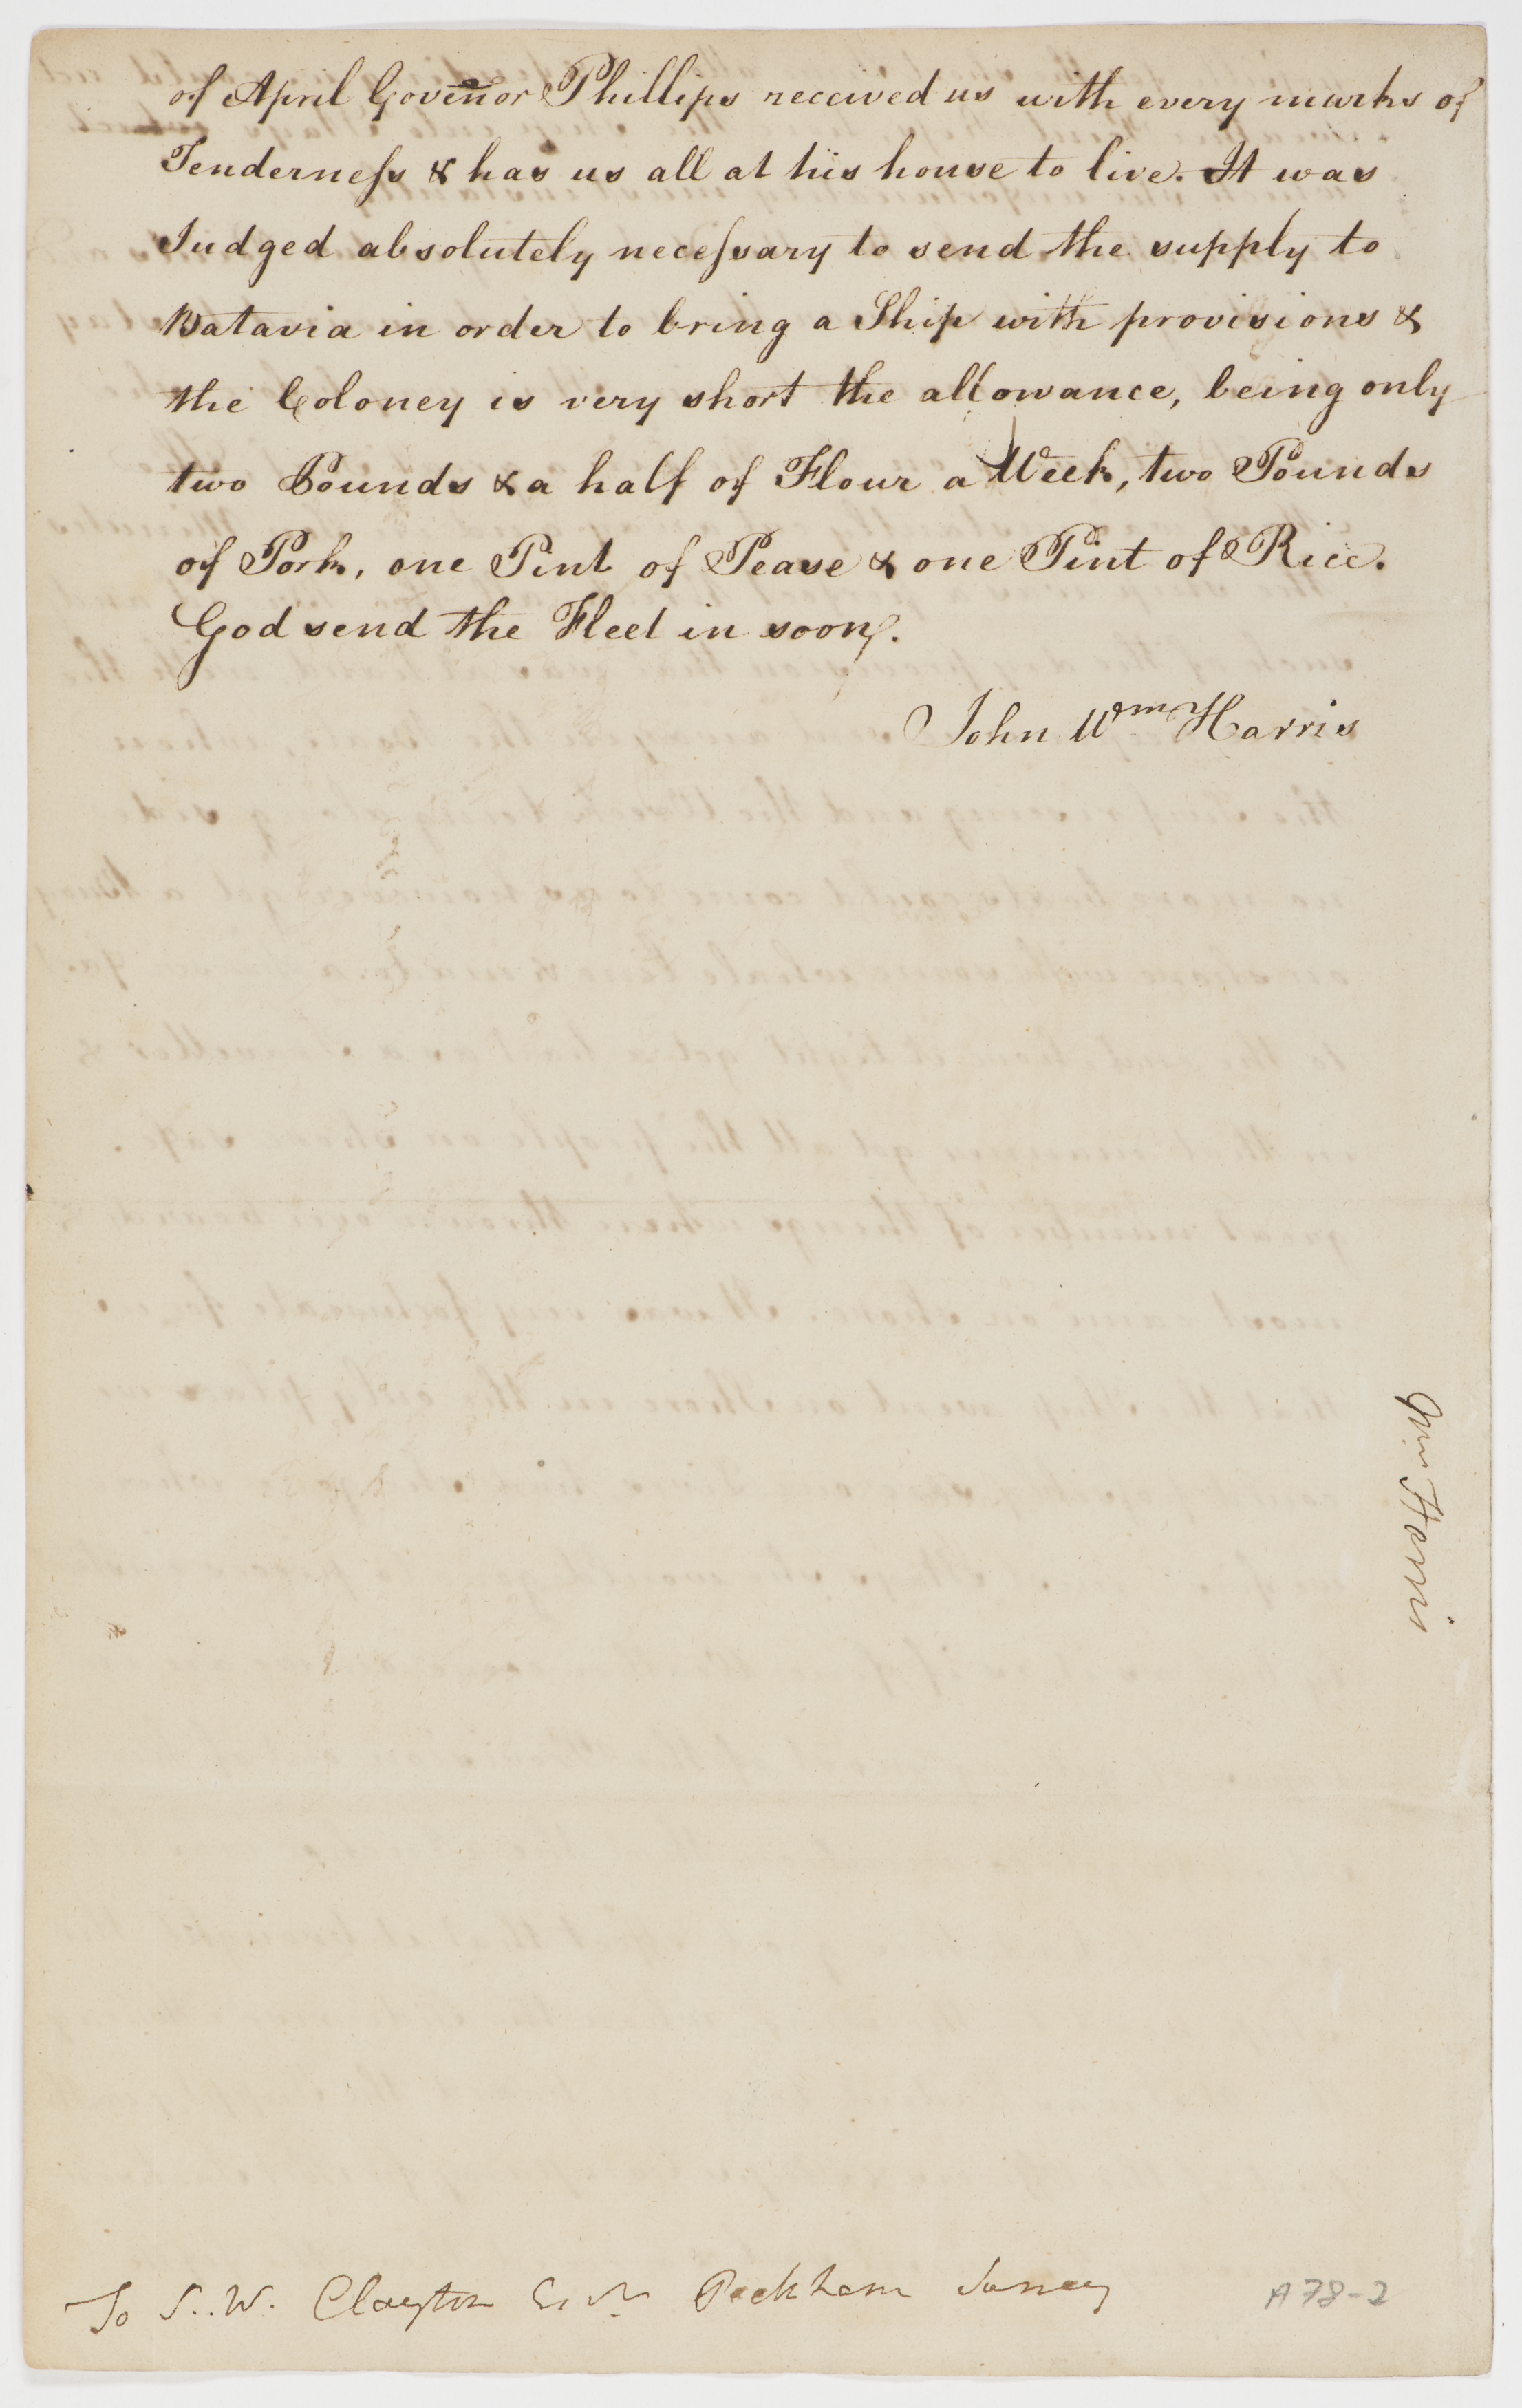 of April Govenor Phillips received us with every marks of
Tenderneſs & has us all at his house to live. It was
Judged absolutely neceſsary to send the supply to
Batavia in order to bring a Ship with provisions &
the Coloney is very short the allowance, being only
two Pounds & a half of Flour a Week, two Pounds
of Pork, one Pint of Pease & one Pint of Rice.
God send the Fleet in soon.
John Wm Harris
Wm Harris
To S. W. Clayton Esqr Peckham Surrey
A78-2